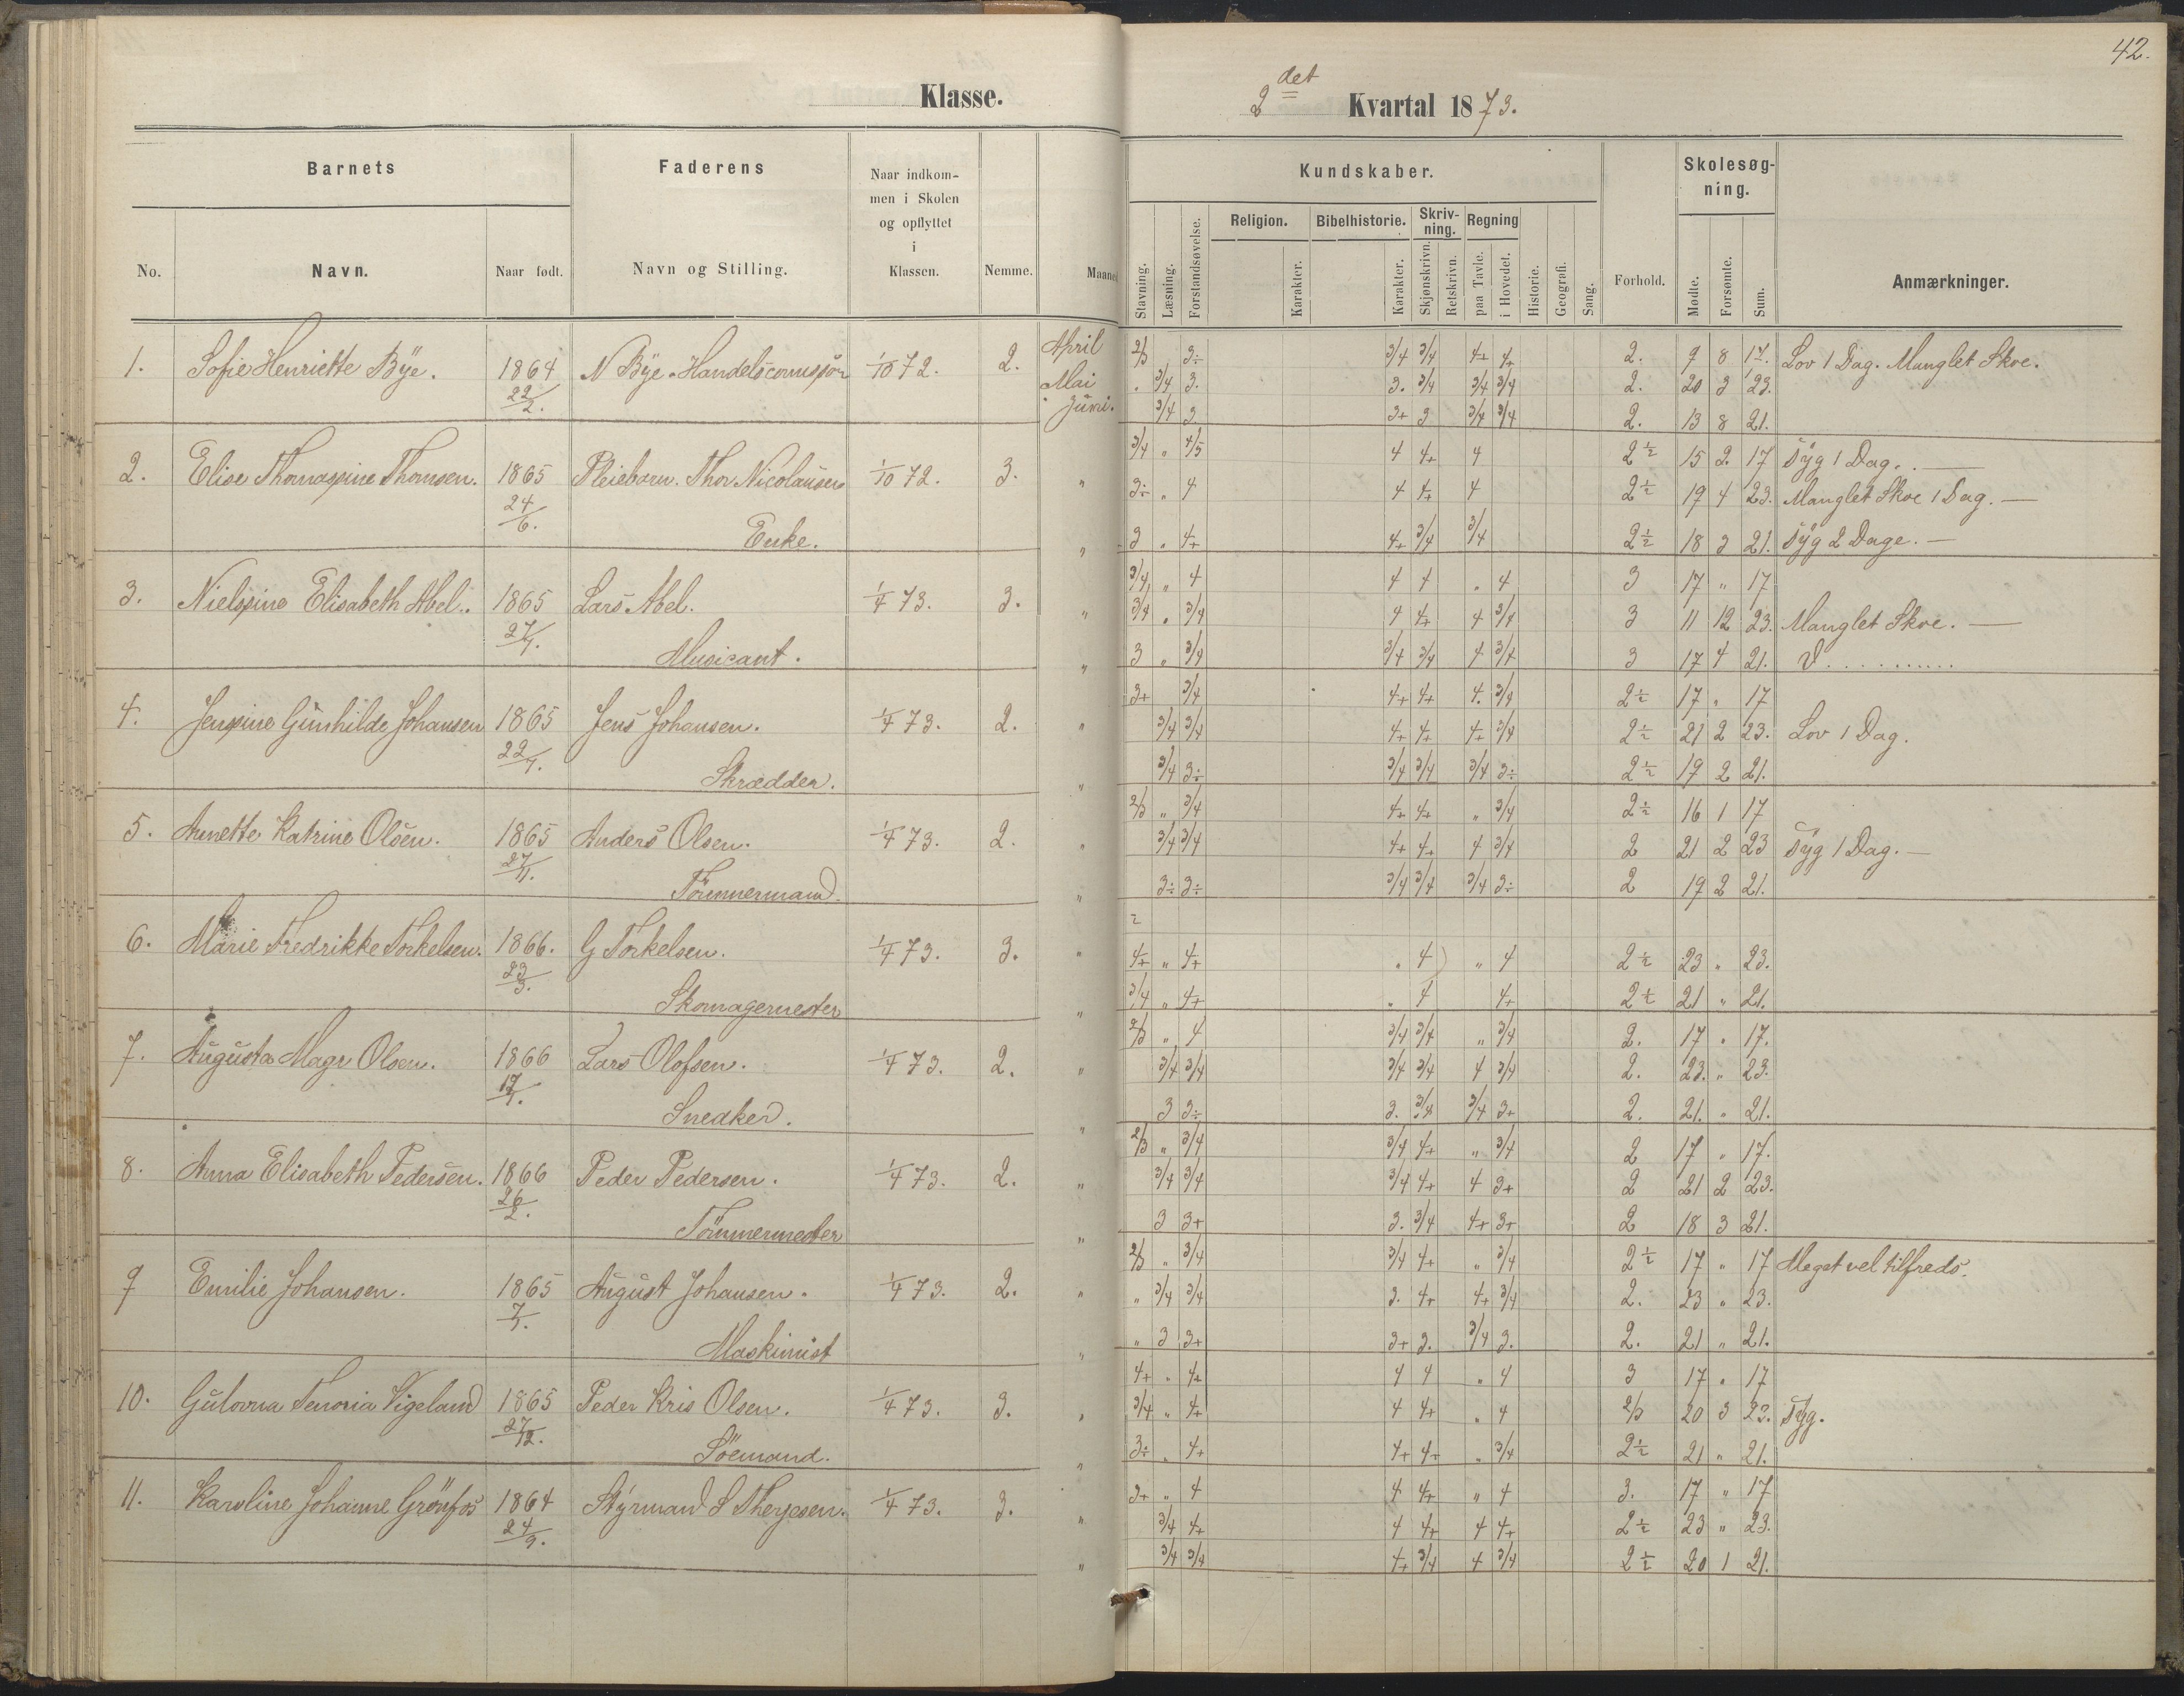 42.
Klasse.
2det Kvartal 1873.
Barnets
Faderens
Naar indkom-
men i Skolen
og opflyttet
i
Klassen.
No.
Navn.
Naar født.
Navn og Stilling.
Nemme.
Maaned
Kundskaber.
Stavning.
Læsning.
Forstandsøvelse.
Religion.
Karakter.
Bibelhistorie.
Karakter.
Skriv-
ning.
Skjønskrivn.
Retskrivn.
Regning
paa Tavle.
i Hovedet.
Historie.
Geografi.
Sang.
Forhold.
Skolesøg-
ning.
Mødte.
Forsømte.
Sum.
Anmærkninger.
1. Sofie Henriette Bÿe. 1864 N Bÿe 1/10 72. 2. April
22/2. Mai
Juni.
2/3 3÷ 3/4 3/4 4+ 4+ 2. 9 8 17. Lov 1 Dag. Manglet Skoe.
" 3/4 3. 3. 3/4 3/4 3/4 2. 20 3 23.
3/4 3 3+ 3 3/4 3/4 2. 13 8 21.
2. Elise Thomaspine Thomsen. 1865 Pleiebarn. Thor Nicolaüsens 1/10 72. 3. "
24/6. Enke.
3/4 " 4/5 4 4+ 4 2½ 15 2. 17 Syg 1 Dag. —
3÷ " 4 4 4+ 4 2½ 19 4 23. Manglet Skoe 1 Dag. —
3 " 4+ 4+ 3/4 3/4 2½ 18 3 21. Syg 2 Dage. —
3. Nielspine Elisabeth Abel. 1865 Lars Abel. 1/4 73. 3. "
27/1. Musicant.
3/4 " 4 4 4 " 4 3 17 " 17
3/4 " 3/4 4 4+ 4 3/4 3 11 12 23. Manglet Skoe. —
3 " 3/4 3/4 3/4 4 3/4 3 17 4 21.
4. Jenspine Günhilde Johansen 1865 Jens Johansen. 1/4 73. 2. "
22/1. Skrædder.
3+ 3/4 4+ 4+ 4. 3/4 2½ 17 " 17
3/4 3/4 4+ 4+ 4+ 3/4 2½ 21 2 23. Lov 1 Dag.
3/4 3÷ 3/4 3/4 3/4 3÷ 2½ 19 2 21.
5. Annette Katrine Olsen. 1865 Anders Olsen. 1/4 73. 2. "
27/11. Tömmermand.
2/3 " 3/4 4+ 4+ " 3/4 2½ 16 1 17
3/4 3/4 4+ 4+ 4 3/4 2 21 2 23 Syg 1 Dag. —
3÷ 3÷ 3/4 3/4 3/4 3÷ 2 19 2 21.
6. Marie Fredrikke Torkelsen. 1866. G Torkelsen. 1/4 73. 3. "
23/3. Skomagermester
4+ " 4+ " 4 " 4 2½ 23 " 23.
3/4 " 4+ " 4 4+ 2½ 21 " 21.
7. Aügusta Magr Olsen. 1866 Lars Olofsen. 1/4 73. 2. "
17/1. Snedker.
2/3 " 4 3/4 3/4 " 3/4 2. 17 " 17.
3/4 3/4 3/4 3/4 4 3/4 2. 23. " 23.
3 3÷ 3. 3/4 3/4 3+ 2. 21. " 21.
8. Anna Elisabeth Pedersen. 1866 Peder Pedersen. 1/4 73. 2. "
26/2. Tömmermester
2/3 " 3/4 3/4 4+ " 3/4 2 17 " 17.
3/4 3/4 3/4 4+ 4 3+ 2 21 2 23.
3 3+ 3. 3/4 4+ 3+ 2 18 3 21.
9 Emilie Johansen. 1865 Aügüst Johansen. 1/4 73. 2. "
Maskinist
2/3 " 3/4 3/4 4+ " 3/4 2½ 17 " 17 Meget vel tilfreds.
" 3/4 3/4 3. 4+ 4+ 3/4 2. 23 " 23.
" 3 3+ 3+ 3. 3/4 3. 2. 21 " 21.
10. Vigeland 1865 Peder Kris Olsen. 1/4 73. 3. "
27/12. Söemand.
4+ " 4+ 4 4 " 4 3 17 " 17
3/4 " 4+ 4 4+ " 4 2/3 20 3 23. Syg.
3÷ " 4+ 4+ 4+ " 3/4 2½ 21 " 21.
11. Karoline Johanne Grönfos 1864 Stÿrmand S Therjesen. 1/4 73. 3. "
24/9.
3+ " 4 4 4+ " 4 3. 17 " 17
3/4 4+ 4 4+ 4 4+ 2½ 23 " 23.
3/4 3/4 4+ 3/4 4 3/4 2½ 20 1 21.